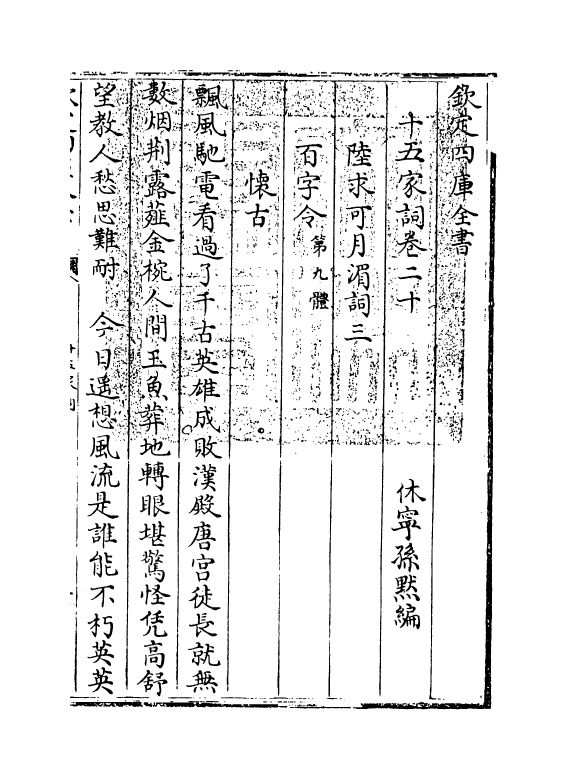 欽定四庫全書
十五家詞卷二十
休寧孫默編
陸求可月湄詞三
百字令第九體
懷古
飄風馳電看過了千古英雄成敗漢殿唐宮徒長就無
數烟荆露薤金椀人間玉魚葬地轉眼堪驚怪凭高舒
望教人愁思難耐　今日遥想風流是誰能不朽英英